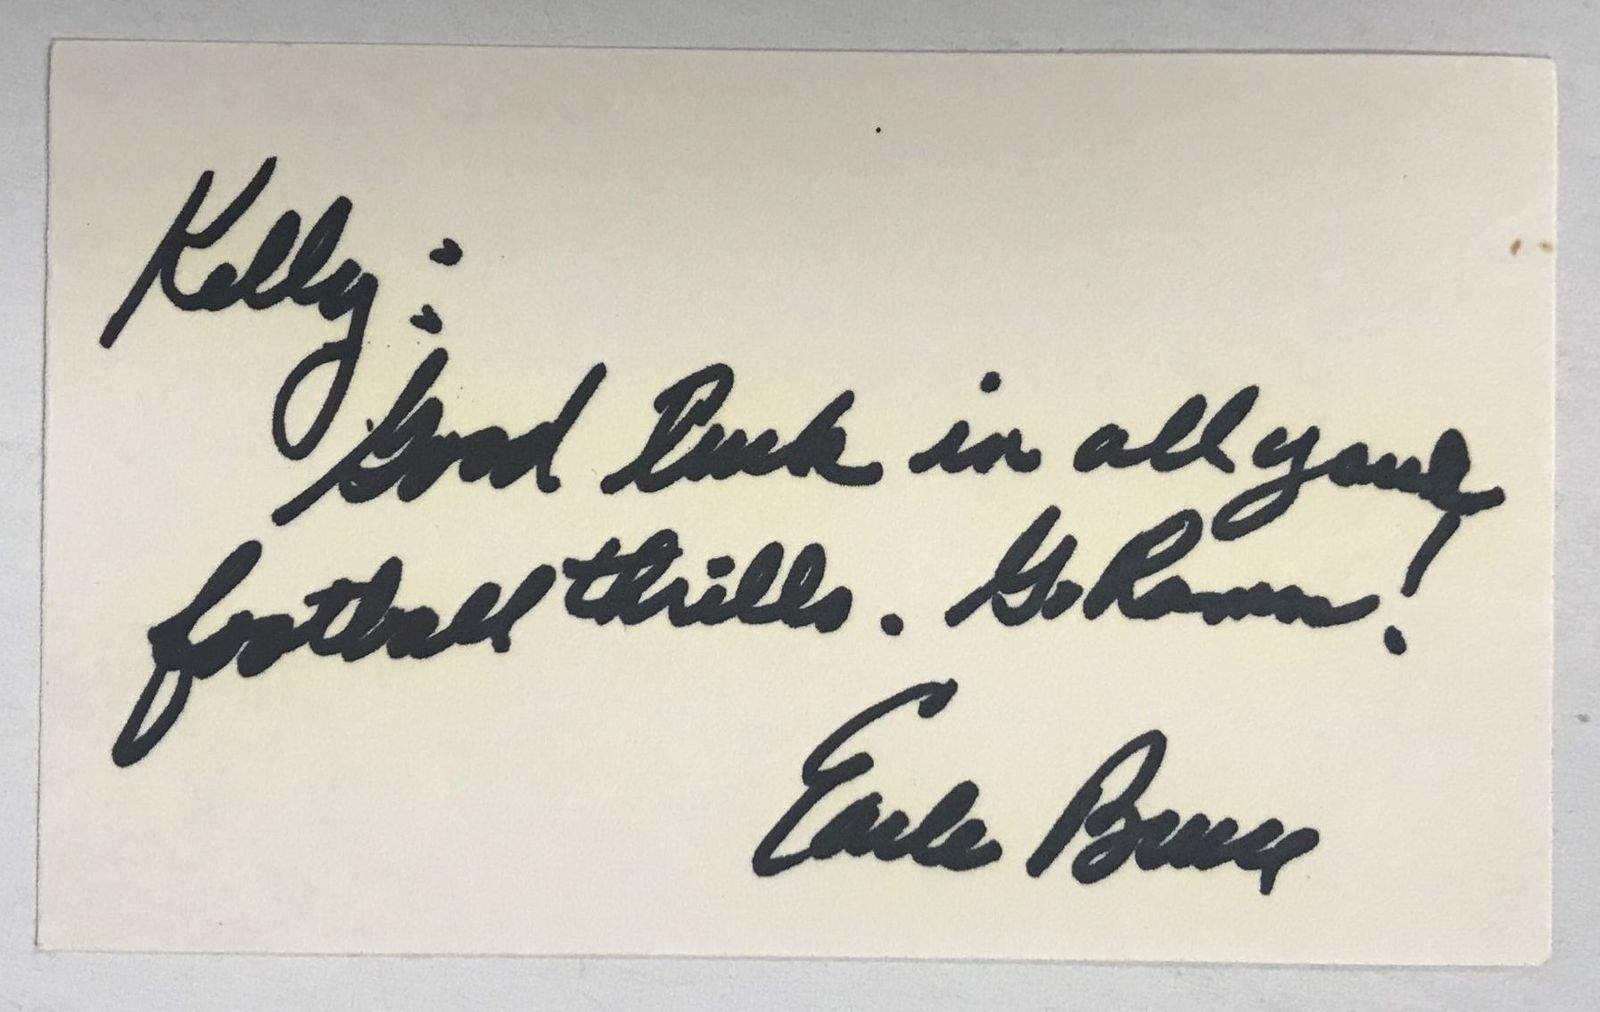 Kelly:
Good luck in all your
football thrills. Go Rams!
Earle Bruce